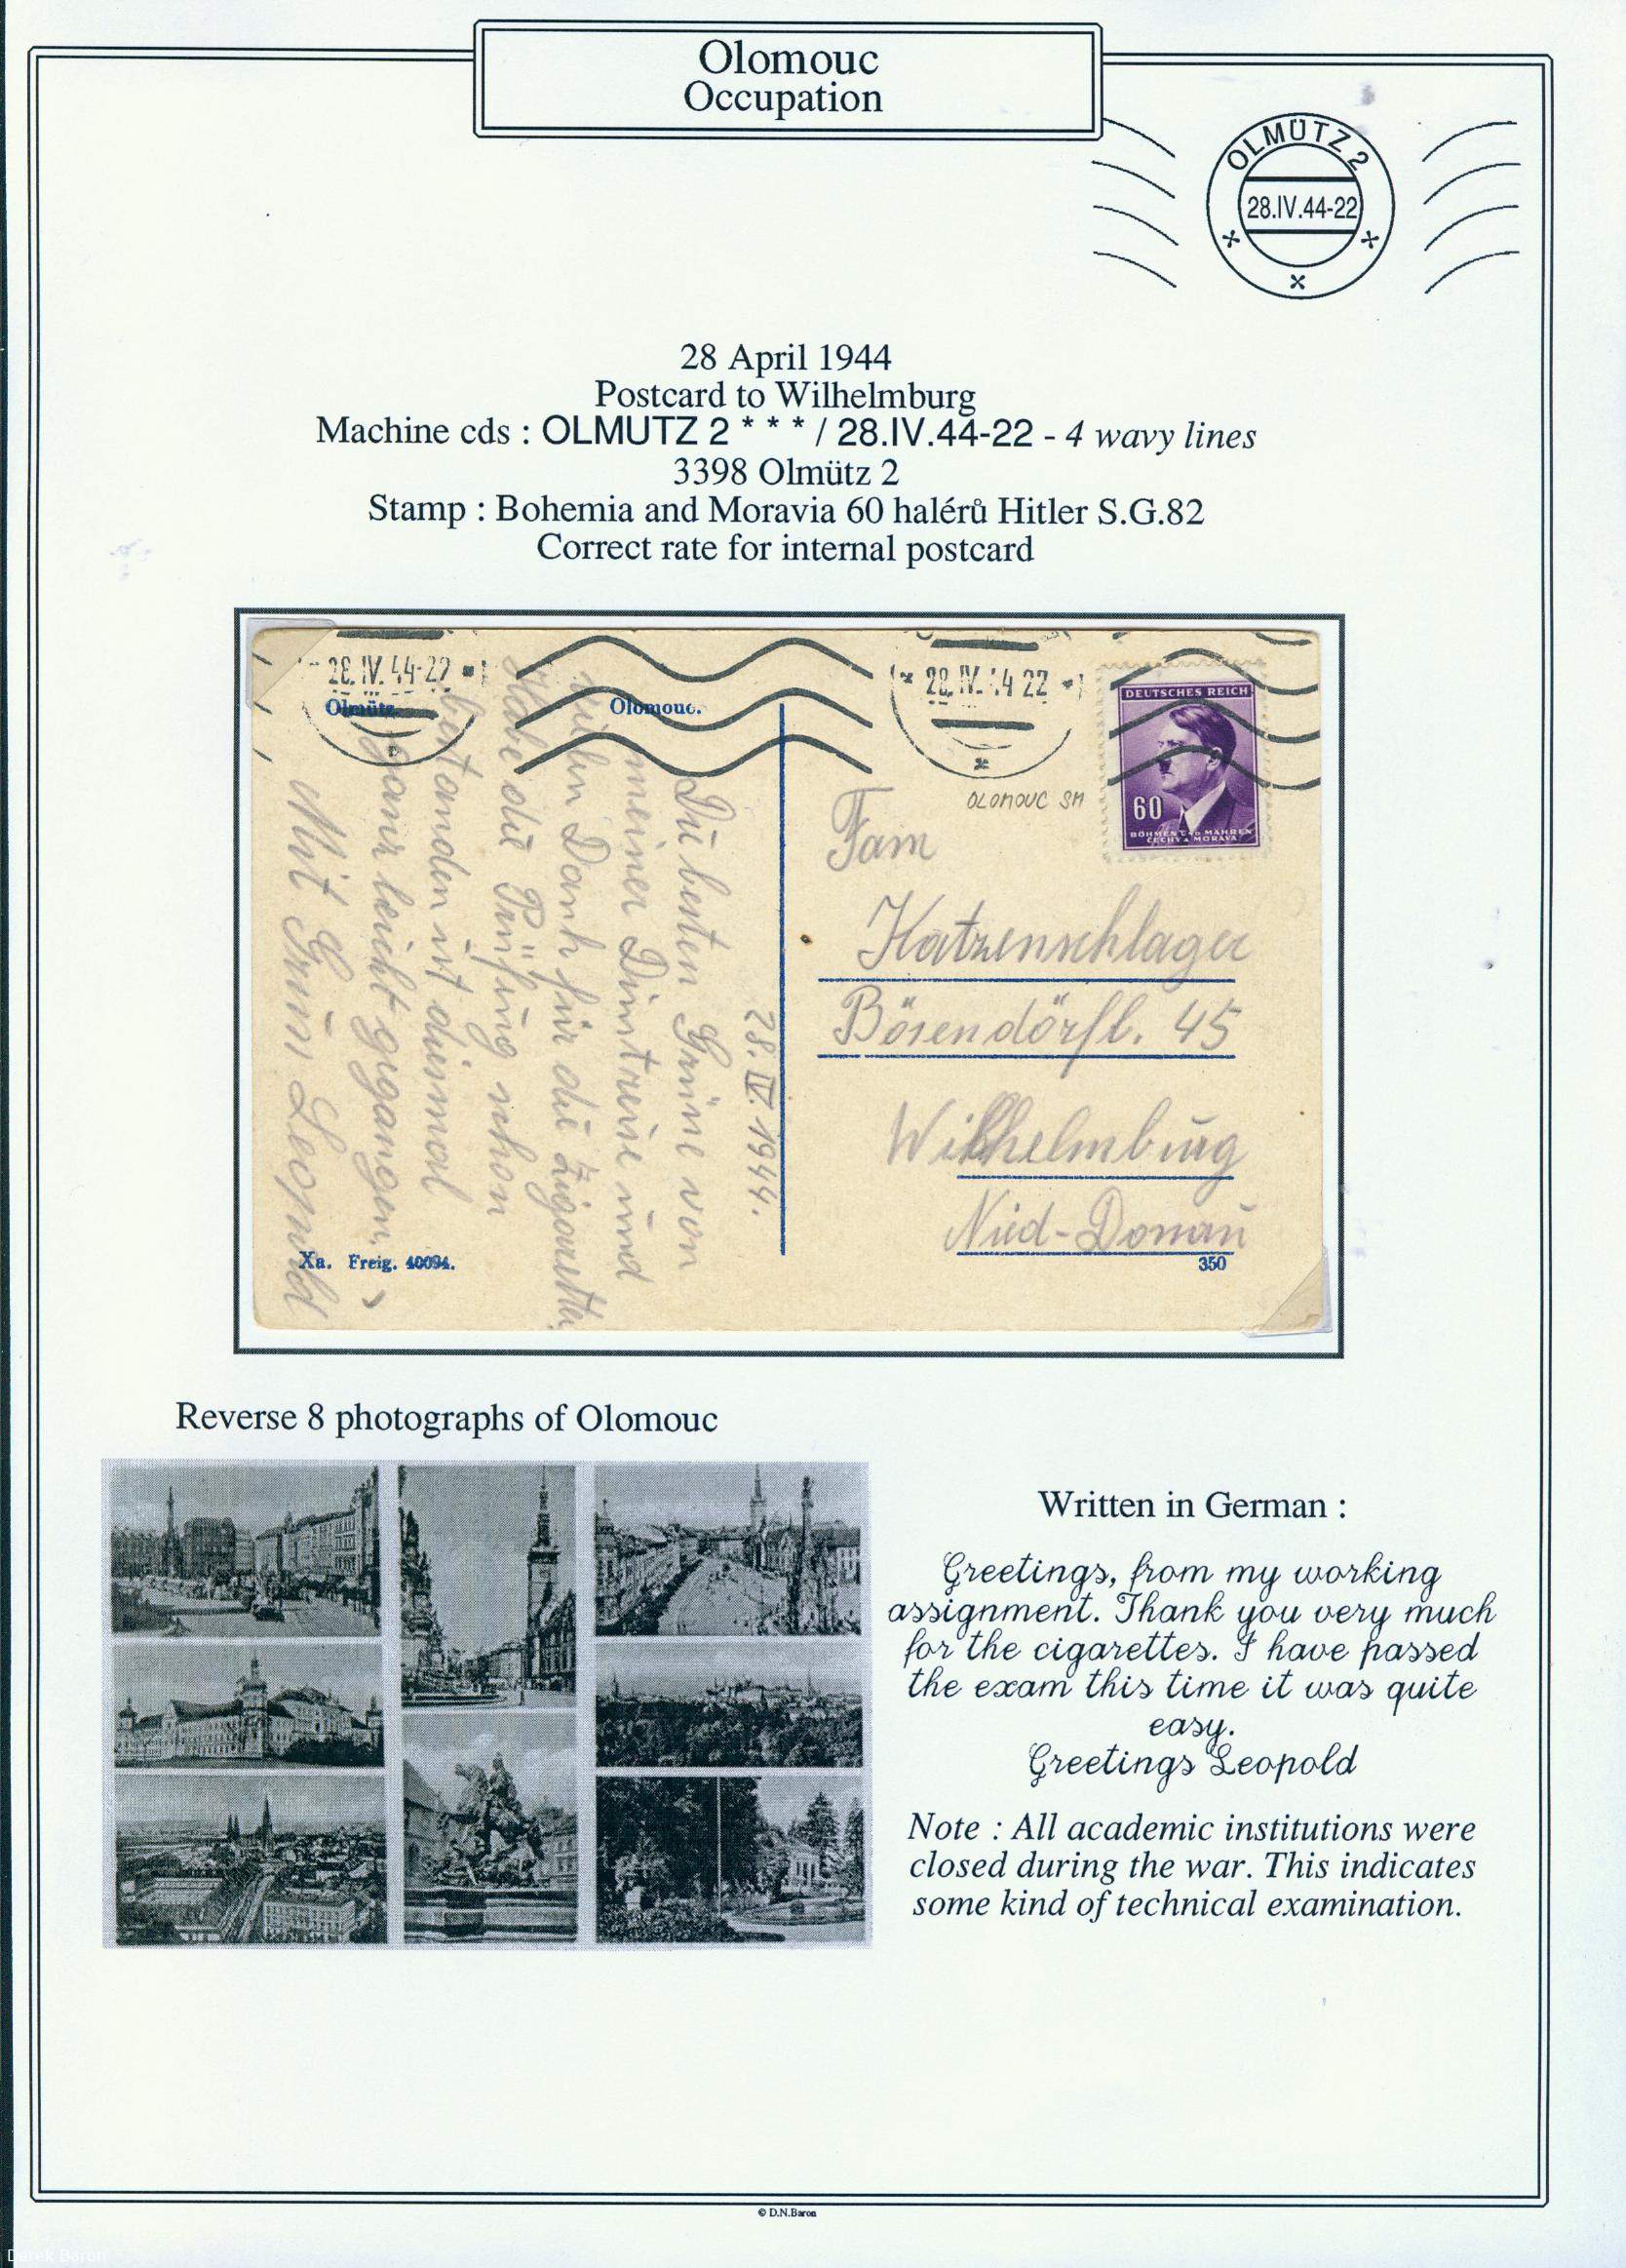 Olomouc
Occupation
OLMÜTZ 2
28.IV.44-22
28 April 1944
Postcard to Wilhelmburg
Machine cds : OLMUTZ 2 * * * / 28.IV.44-22 - 4 wavy lines
3398 Olmütz 2
Stamp : Bohemia and Moravia 60 halérů Hitler S.G.82
Correct rate for internal postcard
28.IV.44-22
28.IV.44 22
Olmütz
Olomouc.
DEUTSCHES REICH
60
BÖHMEN UND MÄHREN
ČECHY A MORAVA
OLOMOUC SM
Fam
Katzenschlager
Bösendörfl. 45
Wilhelmburg
Nied-Donau
350
28. IV. 1944.
Die besten Grüße von
meiner Dienstreise und
vielen Dank für die Zigaretten.
Habe die Prüfung schon
bestanden ist diesmal
ganz leicht gegangen.
Mit Gruß Leopold
Xa. Freig. 40094.
Reverse 8 photographs of Olomouc
Written in German :
Greetings, from my working
assignment. Thank you very much
for the cigarettes. I have passed
the exam this time it was quite
easy.
Greetings Leopold
Note : All academic institutions were
closed during the war. This indicates
some kind of technical examination.
© D.N.Baron
Derek Baron